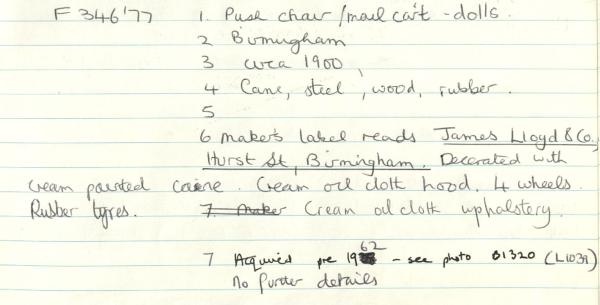 F 346'77 1. Push chair / mail cart - dolls.
2 Birmingham
3 circa 1900
4 Cane, steel, wood, rubber.
5
6 makers label reads James Lloyd & Co,
Hurst St, Birmingham. Decorated with
cream painted cane. Cream oil cloth hood. 4 wheels.
Rubber tyres. 7. Maker Cream oil cloth upholstery.
7 Acquired pre 1962 - see photo B1320 (L1039)
No further details